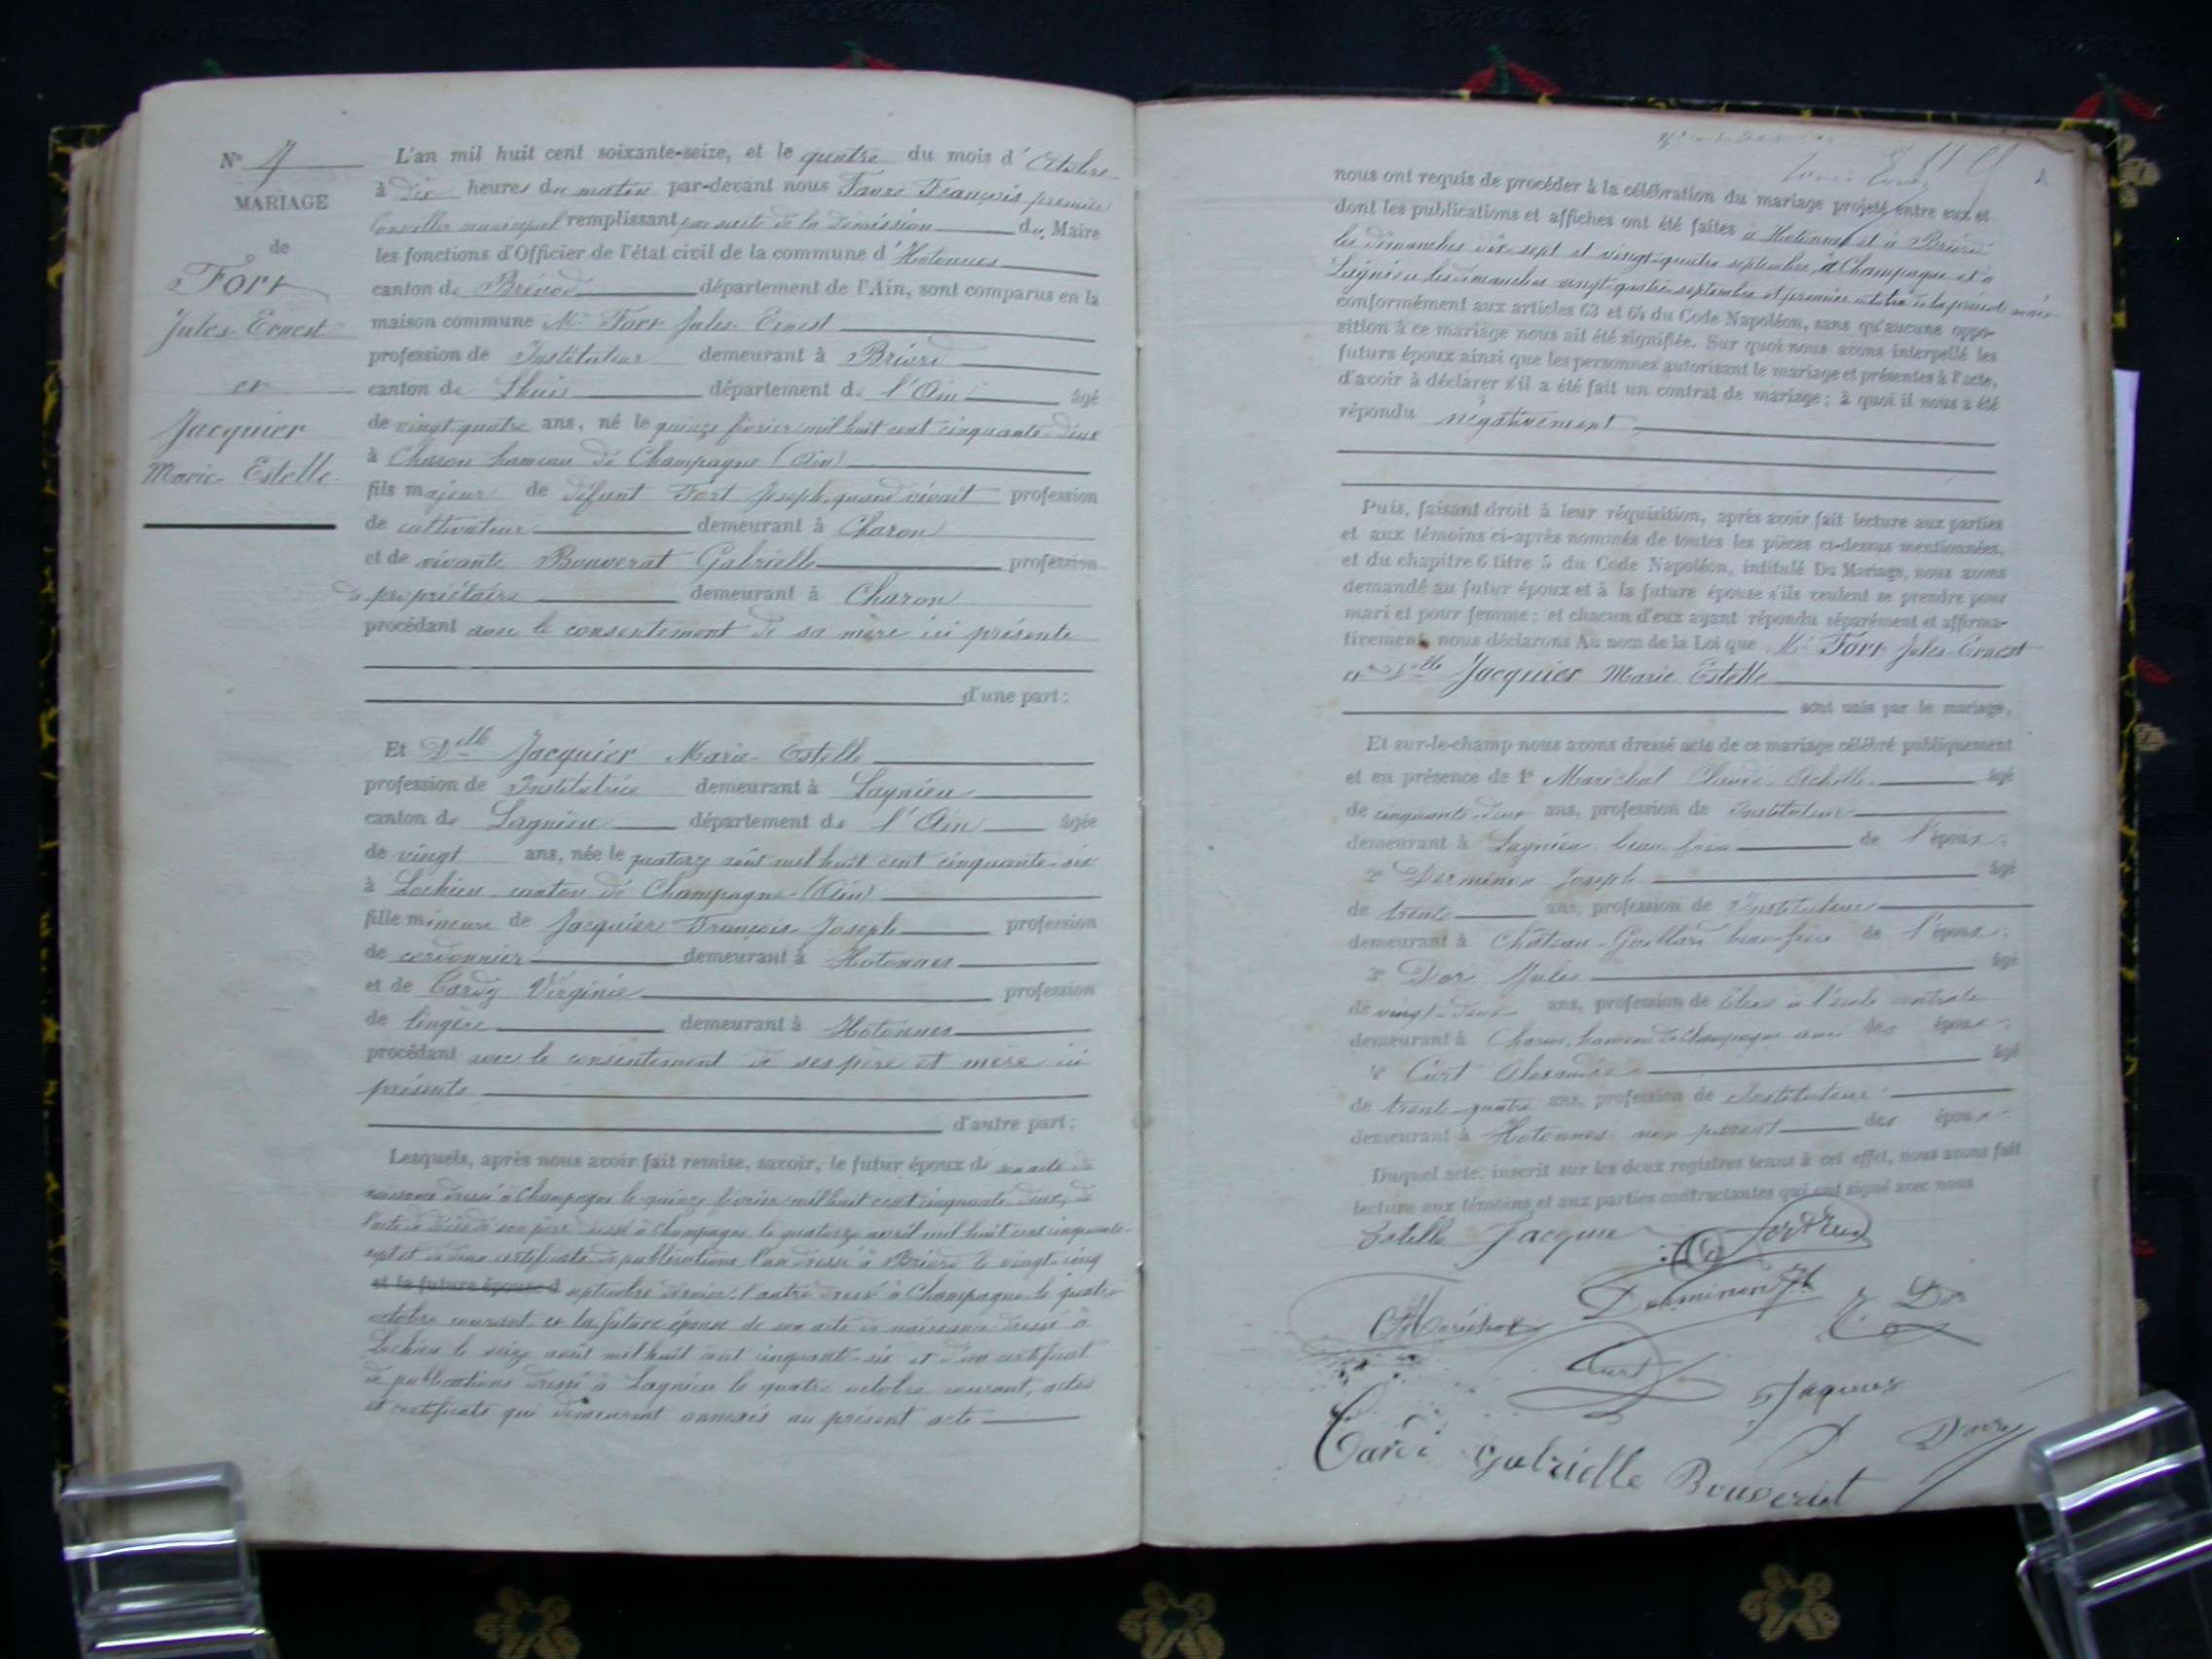 N° 7
MARIAGE
de
Fort
Jules-Ernest
et
Jacquier
Marie-Estelle
L'an mil huit cent soixante-seize, et le quatre du mois d'Octobre
à dix heures du matin par-devant nous Favre François premier
Conseiller municipal remplissant par suite de la démission du Maire
les fonctions d'Officier de l'état civil de la commune d'Hotonnes
canton de Brénod département de l'Ain, sont comparus en la
maison commune Mr Fort Jules-Ernest
profession de Instituteur demeurant à Briord
canton de Lhuis département de l'Ain âgé
de vingt quatre ans, né le quinze février mil huit cent cinquante-deux
à Charon hameau de Champagne (Ain)
fils majeur de défunt Fort Joseph, quand vivait profession
de cultivateur demeurant à Charon
et de vivante Bouverat Gabrielle profession
de propriétaire demeurant à Charon
procédant avec le consentement de sa mère ici présente
d'une part;
Et Delle Jacquier Marie-Estelle
profession de Institutrice demeurant à Lagnieu
canton de Lagnieu département de l'Ain âgée
de vingt ans, née le quatorze août mil huit cent cinquante-six
à Lochieu canton de Champagne (Ain)
fille mineure de Jacquier François Joseph profession
de cordonnier demeurant à Hotonnes
et de Cardy Virginie profession
de lingère demeurant à Hotonnes
procédant avec le consentement de ses père et mère ici
présents
d'autre part;
Lesquels, après nous avoir fait remise, savoir, le futur époux de son acte de
naissance dressé à Champagne le quinze février mil huit cent cinquante deux, de
l'acte de décès de son père dressé à Champagne le quatorze avril mil huit cent cinquante-
sept et de deux certificats de publications l'un dressé à Briord le vingt-cinq
et la future épouse d septembre dernier, l'autre dressé à Champagne le quatre
octobre courant et la future épouse de son acte de naissance dressé à
Lochieu le seize août mil huit cent cinquante-six et d'un certificat
de publications dressé à Lagnieu le quatre octobre courant, actes
et certificats qui demeurent annexés au présent acte
nous ont requis de procéder à la célébration du mariage projeté entre eux et
dont les publications et affiches ont été faites à Hotonnes et à Briord
les dimanches dix-sept et vingt-quatre septembre, à Champagne et à
Lagnieu les dimanches vingt-quatre septembre et premier octobre de la présente année
conformément aux articles 63 et 64 du Code Napoléon, sans qu'aucune oppo-
sition à ce mariage nous ait été signifiée. Sur quoi nous avons interpellé les
futurs époux ainsi que les personnes autorisant le mariage et présentes à l'acte,
d'avoir à déclarer s'il a été fait un contrat de mariage; à quoi il nous a été
répondu négativement
Puis, faisant droit à leur réquisition, après avoir fait lecture aux parties
et aux témoins ci-après nommés de toutes les pièces ci-dessus mentionnées,
et du chapitre 6 titre 5 du Code Napoléon, intitulé Du Mariage, nous avons
demandé au futur époux et à la future épouse s'ils veulent se prendre pour
mari et pour femme; et chacun d'eux ayant répondu séparément et affirma-
tivement nous déclarons Au nom de la Loi que Mr Fort Jules-Ernest
et Delle Jacquier Marie Estelle
sont unis par le mariage,
Et sur-le-champ nous avons dressé acte de ce mariage célébré publiquement
et en présence de 1° Maréchal Claude-Achille âgé
de cinquante-deux ans, profession de Instituteur
demeurant à Lagnieu beau-frère de l'époux;
2° Derminon Joseph âgé
de trente ans, profession de Instituteur
demeurant à Château-Gaillard beau-frère de l'époux;
3° Dor Jules âgé
de vingt-deux ans, profession de Elève à l'école centrale
demeurant à Charon, hameau de Champagne ami des époux;
4° Curt Alexandre âgé
de trente-quatre ans, profession de Instituteur
demeurant à Hotonnes non parent des époux
Duquel acte, inscrit sur les deux registres tenus à cet effet, nous avons fait
lecture aux témoins et aux parties contractantes qui ont signé avec nous
Estelle Jacquier
Maréchal Derminon Jh J Dor
Curt Jaquier
Gabrielle Bouverat Favre